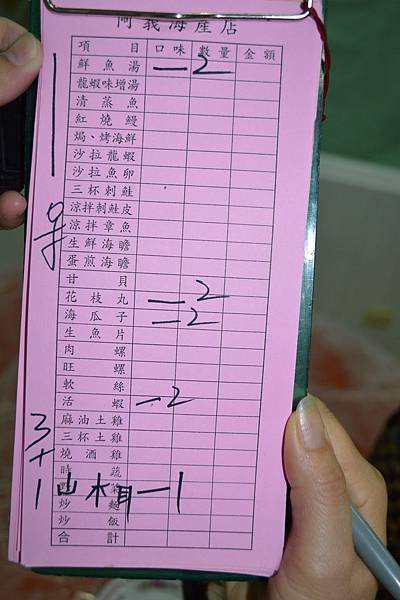 阿義海產店
項目 口味 數量 金額
鮮魚湯 — 2
龍蝦味增湯
清蒸魚
紅燒鰻
焗、烤海鮮
沙拉龍蝦
沙拉魚卵
三杯刺鮭
涼拌刺鮭皮
涼拌章魚
生鮮海膽
蛋煎海膽
甘貝
花枝丸 — 2
海瓜子 — 2
生魚片
肉螺
旺螺
軟絲
活蝦 — 2
麻油土雞
三杯土雞
燒酒雞
時蔬
山木耳 — 1
炒麵
炒飯
合計
3+1